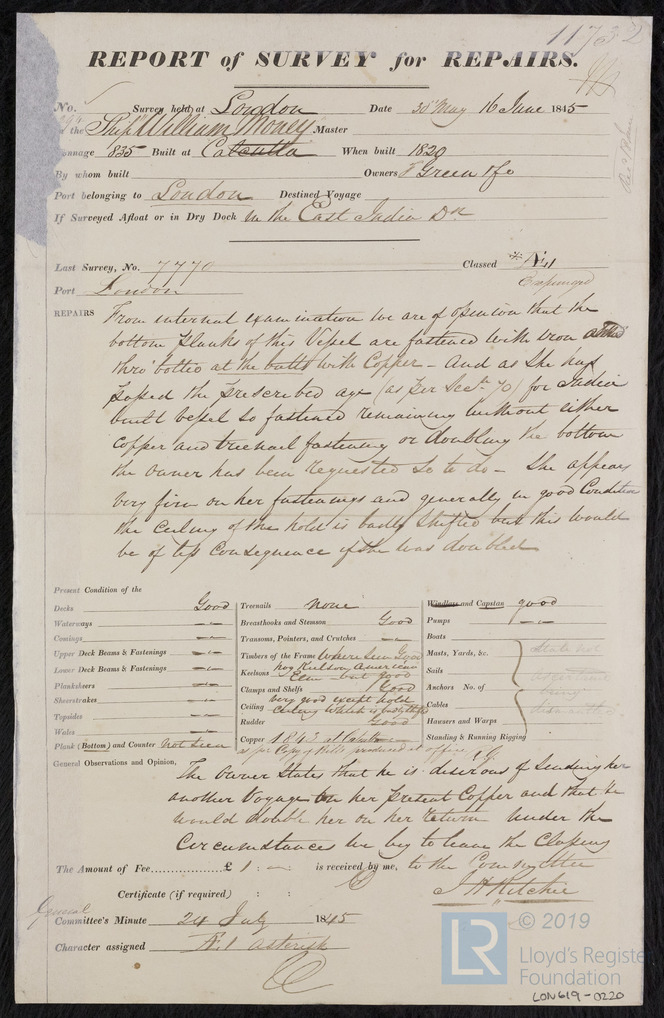 11762
REPORT of SURVEY for REPAIRS.
No. Survey held at London Date 30 May 16 June 1845
the Ship "William Money" Master
Tonnage 835 Built at Calcutta When built 1820
By whom built Owners F Green & Co
Port belonging to London Destined Voyage
If Surveyed Afloat or in Dry Dock in the East India Dk
Last Survey, No. 7770 Classed *Æ1
Port London Expunged
REPAIRS From internal examination we are of opinion that the
bottom planks of this Vessel are fastened with iron
thro' bolted at the butts with Copper – And as She has
passed the prescribed age (as per Sectn 70) for India
built vessel so fastened remaining without either
Copper and treenail fastening or doubling the bottom
the Owner has been requested so to do – She appears
very firm on her fastenings and generally in good Condition
the Ceiling of the hold is badly shifted but this would
be of less Consequence if she was doubled
Present Condition of the
Decks Good
Waterways "
Comings "
Upper Deck Beams & Fastenings "
Lower Deck Beams & Fastenings "
Planksheers "
Sheerstrakes "
Topsides "
Wales "
Plank (Bottom) and Counter not seen
Treenails none
Breasthooks and Stemson Good
Transoms, Pointers, and Crutches "
Timbers of the Frame where seen Good
Keelsons American
Elm but good
Clamps and Shelfs Good
Ceiling very good except hold
ceiling which is badly shifted
Rudder Good
Copper 1843 at
as per Copy of Bills produced at office
Windlass and Capstan good
Pumps "
Boats
Masts, Yards, &c.
Sails
Anchors No. of
Cables
Hawsers and Warps
Standing & Running Rigging
state not
ascertained
being
dismantled
General Observations and Opinion,
The Owner States that he is desirous of Sending her
another Voyage on her present Copper and that he
would double her on her return Under the
Circumstances we beg to leave the Classing
The Amount of Fee.................£ 1 : – is received by me, to the Committee
Certificate (if required) : :
J H Ritchie
General
Committee's Minute 24 July 1845
Character assigned Æ 1 asterisk
LR
© 2019
Lloyd's Register
Foundation
LON619-0220